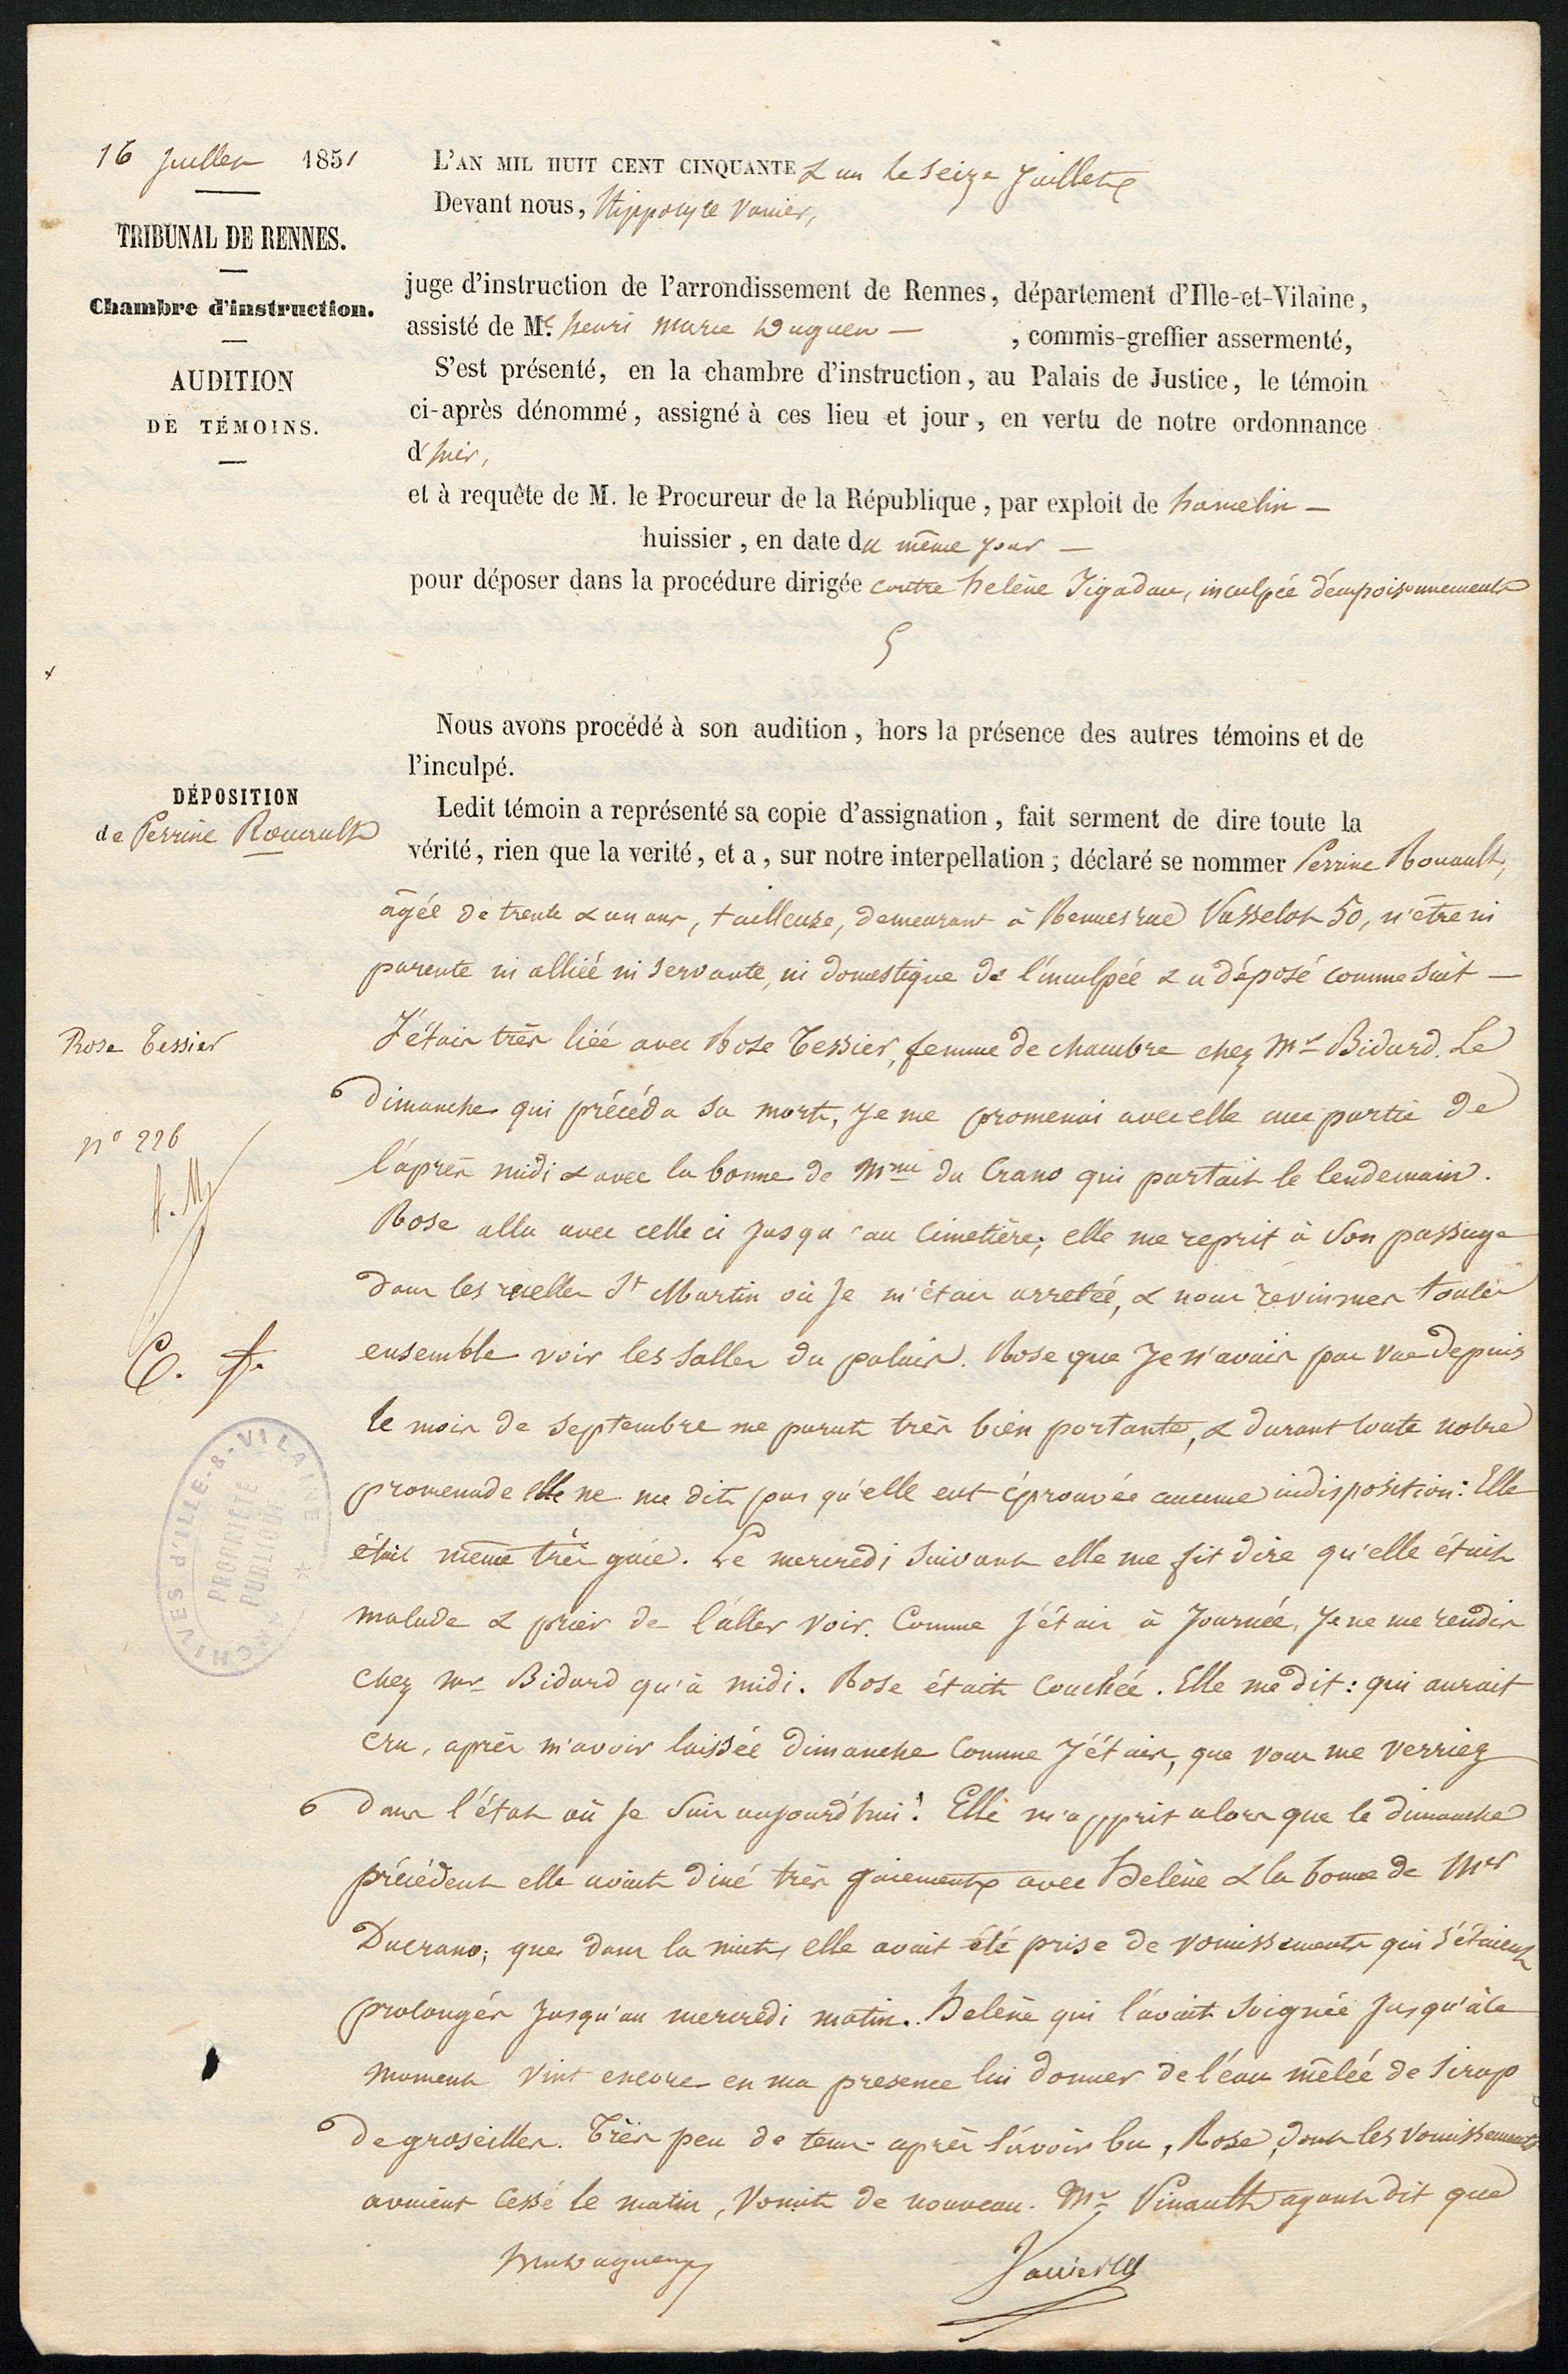 16 Juillet 1851
TRIBUNAL DE RENNES.
Chambre d'instruction.
AUDITION
DE TÉMOINS.
L'AN MIL HUIT CENT CINQUANTE & un le seize Juillet
Devant nous, Hippolyte Vanier,
juge d'instruction de l'arrondissement de Rennes, département d'Ille-et-Vilaine,
assisté de Me. henri marie , commis-greffier assermenté,
S'est présenté, en la chambre d'instruction, au Palais de Justice, le témoin
ci-après dénommé, assigné à ces lieu et jour, en vertu de notre ordonnance
d'hier,
et à requête de M. le Procureur de la République, par exploit de hamelin —
huissier, en date du même jour —
pour déposer dans la procédure dirigée contre helène Jégadau, inculpée d'empoisonnement
Nous avons procédé à son audition, hors la présence des autres témoins et de
l'inculpé.
DÉPOSITION
de Perrine Rouault
Ledit témoin a représenté sa copie d'assignation, fait serment de dire toute la
vérité, rien que la verité, et a, sur notre interpellation; déclaré se nommer Perrine Rouault,
âgée de trente & un ans, tailleuse, demeurant à Rennes rue Vasselot 50, n'être ni
parente ni alliée ni servante, ni domestique de l'inculpée & a déposé comme suit —
Rose Tessier
J'étais très liée avec Rose Tessier, femme de chambre chez Mr Bidard. Le
dimanche qui précéda sa mort, je me promenai avec elle une partie de
n° 226
l'après midi & avec la bonne de Mme du Crano qui partait le lendemain.
Rose alla avec celle ci jusqu'au Cimetière; elle me reprit à son passage
dans les ruelles St Martin où je m'étais arretée, & nous revinmes toutes
ensemble voir les salles du palais. Rose que je n'avais pas vue depuis
le mois de septembre me parut très bien portante, & durant toute notre
promenade elle ne me dit pas qu'elle eut éprouvée aucune indisposition: Elle
était même très gaie. Le mercredi suivant elle me fit dire qu'elle était
malade & prier de l'aller voir. Comme j'étais à journée, je ne me rendis
chez Mr Bidard qu'à midi. Rose était couchée. Elle me dit: qui aurait
cru, après m'avoir laissée dimanche comme j'étais, que vous me verriez
dans l'état où je suis aujourd'hui! Elle m'apprit alors que le dimanche
précédent elle avait diné très gaiement avec Helène & la bonne de Mr
Ducrano; que dans la nuit, elle avait été prise de vomissements qui s'étaient
prolongés jusqu'au mercredi matin. Helène qui l'avait soignée jusqu'à ce
moment vint encore en ma presence lui donner de l'eau mêlée de sirop
de groseilles. Très peu de tems après l'avoir bu, Rose, dont les vomissements
avaient cessé le matin, vomit de nouveau. Mr Pinault ayant dit que
Vanier
ARCHIVES d'ILLE-&-VILAINE
PROPRIÉTÉ
PUBLIQUE